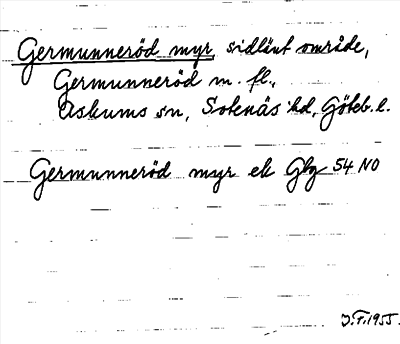 Germunneröd myr, sidlänt område,
Germunneröd m. fl.,
Askums sn, Sotenäs hd, Göteb. l.
Germunneröd myr ek Gbg 54 NO
J.F. 1955.